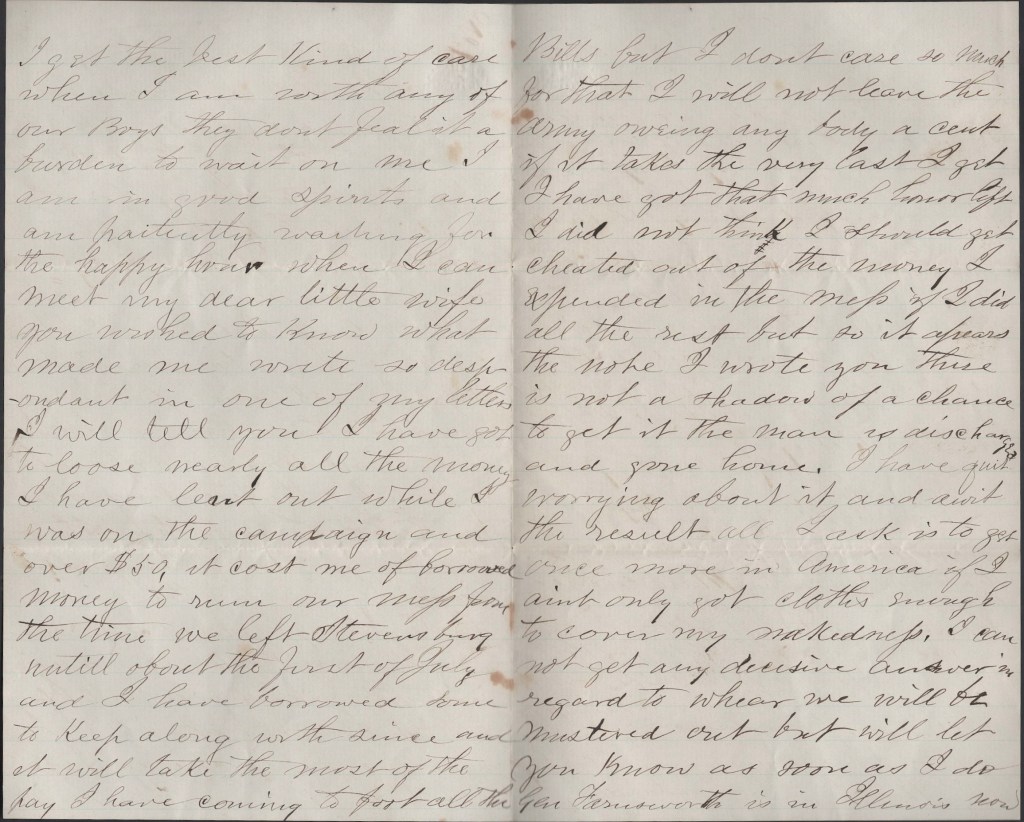 I get the best Kind of care
when I am with any of
our Boys they dont feal it a
burden to wait on me I
am in good spirits and
am paitently waiting for
the happy hour when I can
meet my dear little wife
you wished to Know what
made me write so desp-
-ondant in one of my letters
I will tell you I have got
to loose nearly all the money
I have lent out while I
was on the campaign and
over $50, it cost me of borrowed
money to run our mess from
the time we left Stevensburg
untill about the first of July
and I have borrowed some
to Keep along with since and
it will take the most of the
pay I have coming to foot all the
Bills but I dont care so much
for that I will not leave the
Army oweing any body a cent
if it takes the very last I get
I have got that much honor left
I did not think I should get
cheated out of the money I
expended in the mess if I did
all the rest but so it apears
the note I wrote you thire
is not a shadow of a chance
to get it the man is discharged
and gone home. I have quit
worrying about it and awit
the result all I ask is to get
once more in America if I
aint only got cloths enough
to cover my nakedness. I can
not get any decisive answer in
regard to whear we will be
Mustered out but will let
you Know as soon as I do
Gen Farnsworth is in Illinois now